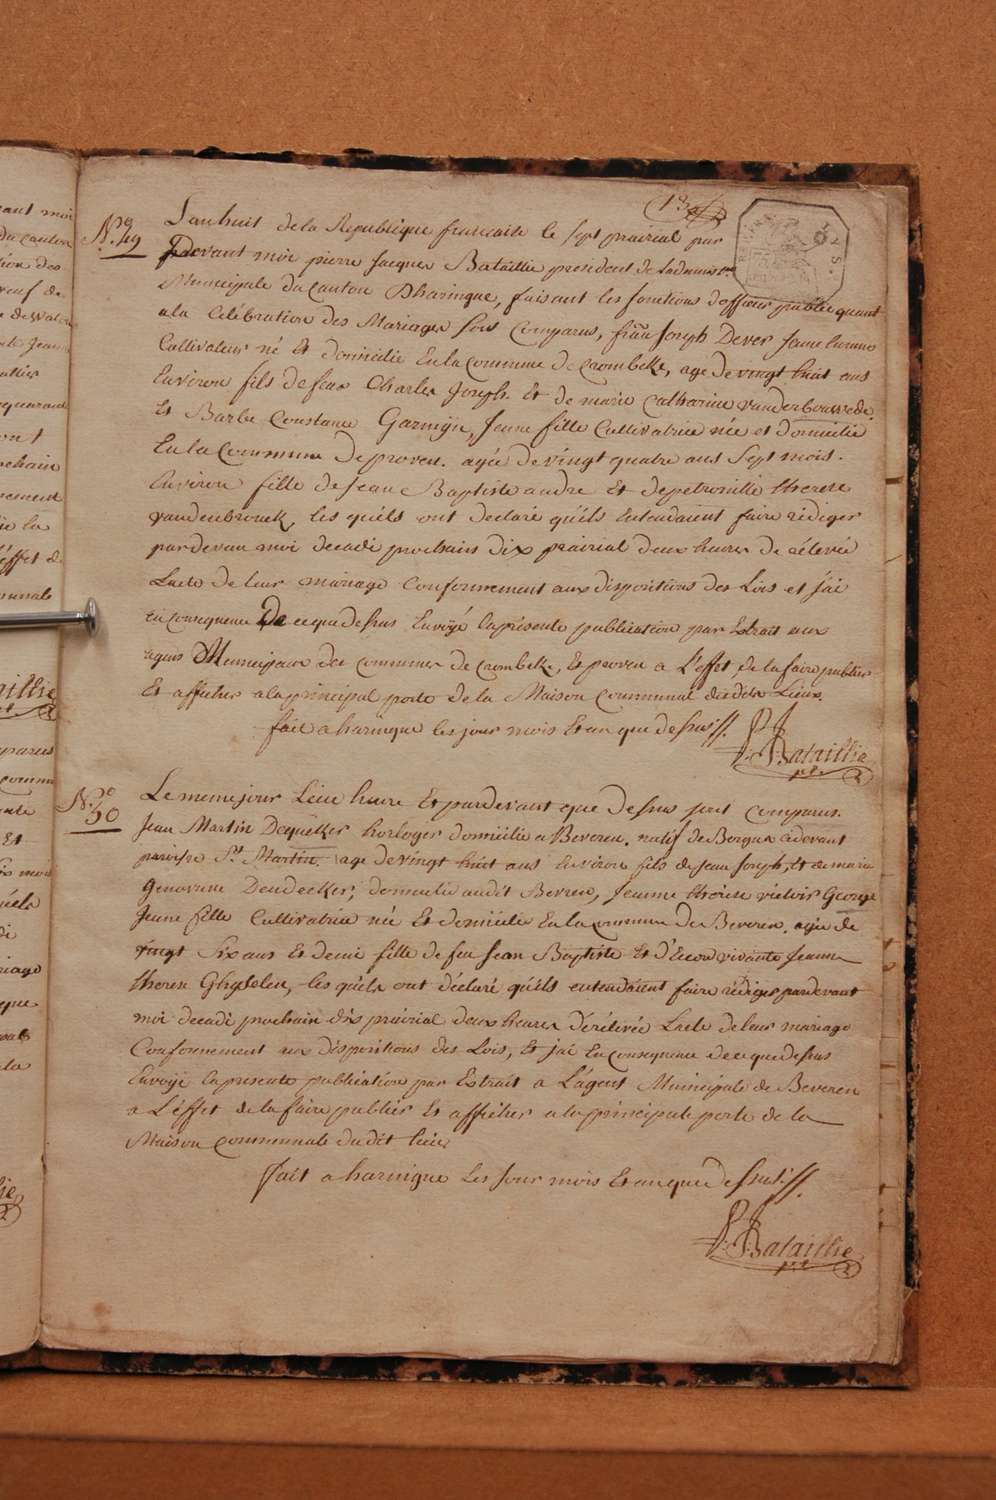 13
N.º 49
L'an huit de la Republique francaise le sept prairial par
Devant moi pierre Jacques Bataillie president de Ladminis
Municipale du Canton Dharingue, faisant les fonctions d'officier public quant
a la Célébration des Mariages sont comparus, Joseph Dever Jeune homme
Cultivateur né Et domicilie En la commune de Crombeke, age de vingt huit ans
Environ fils de feu Charles Joseph Et de marie Catharine vandenbouwede
Et Barbe Constance Garmijn, Jeune fille Cultivatrice née et domicilie
En la Commune De proven. agée de vingt quatre ans Sept mois.
Environ fille de Jean Baptiste andre Et de petronille therese
vandenbrouck, les quéls ont declaré quéls Entendaient faire rédiger
pardevan moi decadi prochain dix prairial deux heures de rélevée
Lacte de leur mariage Conformement aux dispositions des Lois et j'ai
En consequence De ce que dessus Envoÿé la présente publication par Extrait aux
agens Municipaux des communes de Crombeke, Et proven a L'effet de la faire publier
Et afficher a la principal porte de la Maison Communal des dits Lieux.
fait a haringue les jour mois Et an que dessus //.
P. J. Bataillie
N.º 50
Le meme jour Lieu heure Et pardevant que dessus sont comparus.
Jean Martin Dequeker horloger domicilie a Beveren, natif de Bergues cidevant
paroisse St. Martin, age de vingt huit ans Environ fils de Jean Joseph, Et de marie
Genovieve Deudecker, domicilie audit Beveren, Jeanne thérèse victoir George
Jeune fille Cultivatrice née Et domicilie En la commune de Beveren, agée de
vingt Six ans Et demie fille de feu Jean Baptiste Et d'Encor vivante Jeanne
therese Ghyselen, les quéls ont déclaré quéls entendaient faire rédiger pardevant
moi decadi prochain dix prairial deux heures dérélévée Lacte de leur mariage
Conformement aux dispositions des Lois, Et j'ai En consequence de ce que dessus
Envoÿé la presente publication par Extrait a L'agent Municipale de Beveren
a L'éffet de la faire publier Et afficher a la principale porte de la
Maison communale du dit lieu
fait a haringue Les Jour mois Et an que dessus //.
P. J. Bataillie